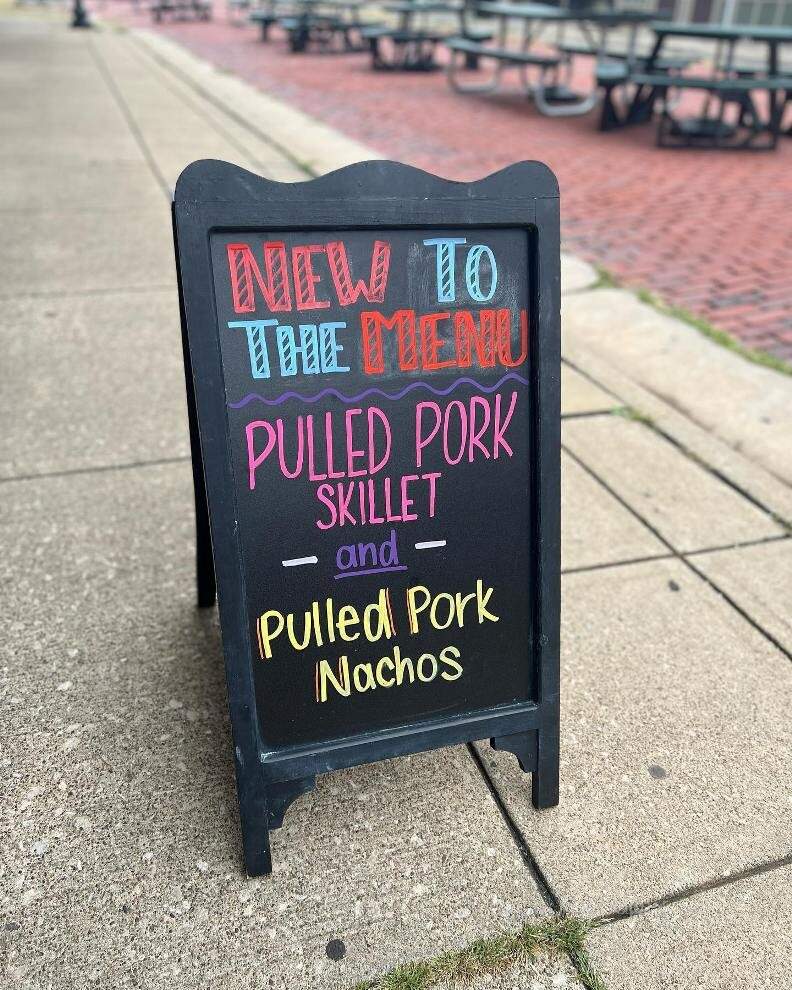 NEW TO
THE MENU
PULLED PORK
SKILLET
- and -
Pulled Pork
Nachos